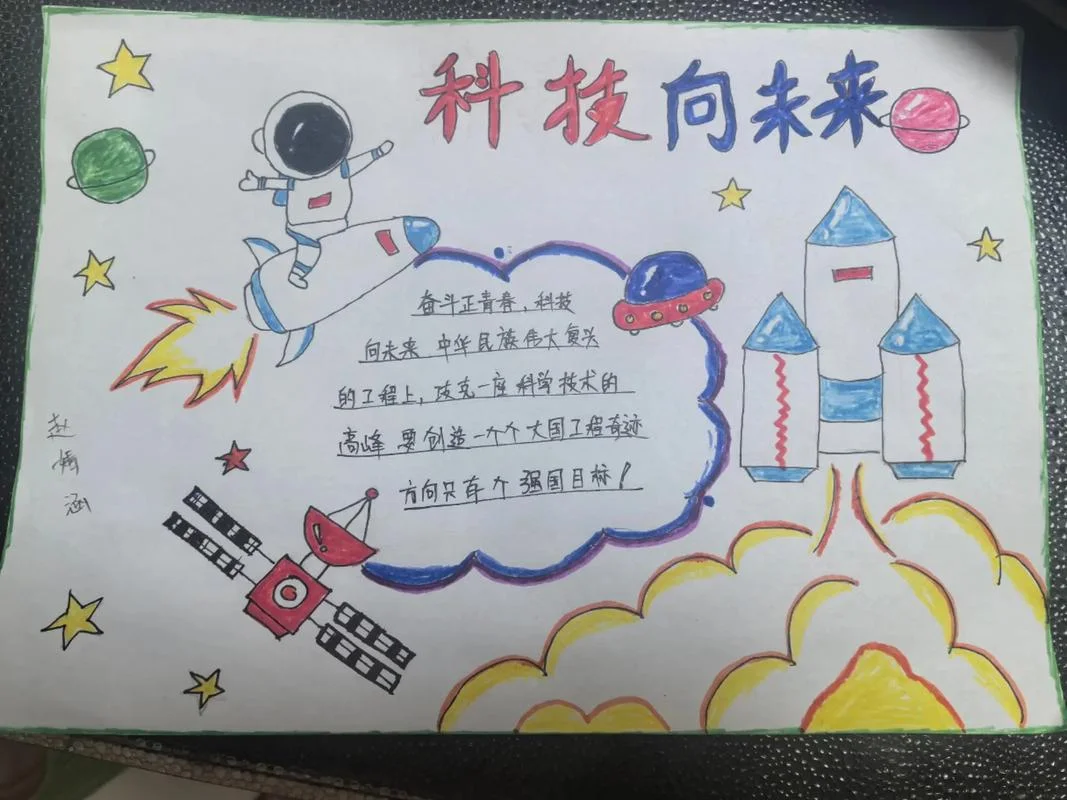 科技向未来
奋斗正青春，科技
向未来 中华民族伟大复兴
的工程上，攻克一座科学技术的
高峰 要创造一个个大国工程奇迹
方向只有个强国目标！
赵
涵